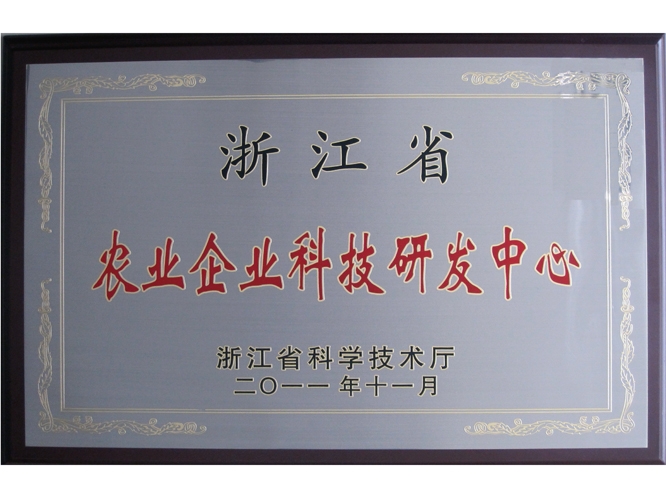 浙江省
农业企业科技研发中心
浙江省科学技术厅
二〇一一年十一月